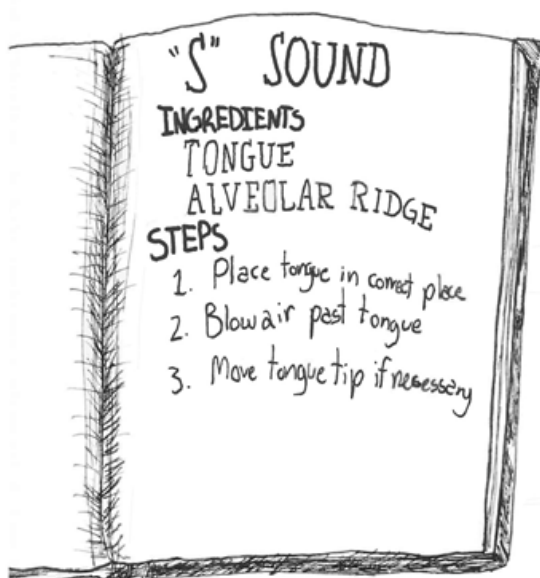 "S" SOUND
INGREDIENTS
TONGUE
ALVEOLAR RIDGE
STEPS
1. Place tongue in correct place
2. Blow air past tongue
3. Move tongue tip if necessary